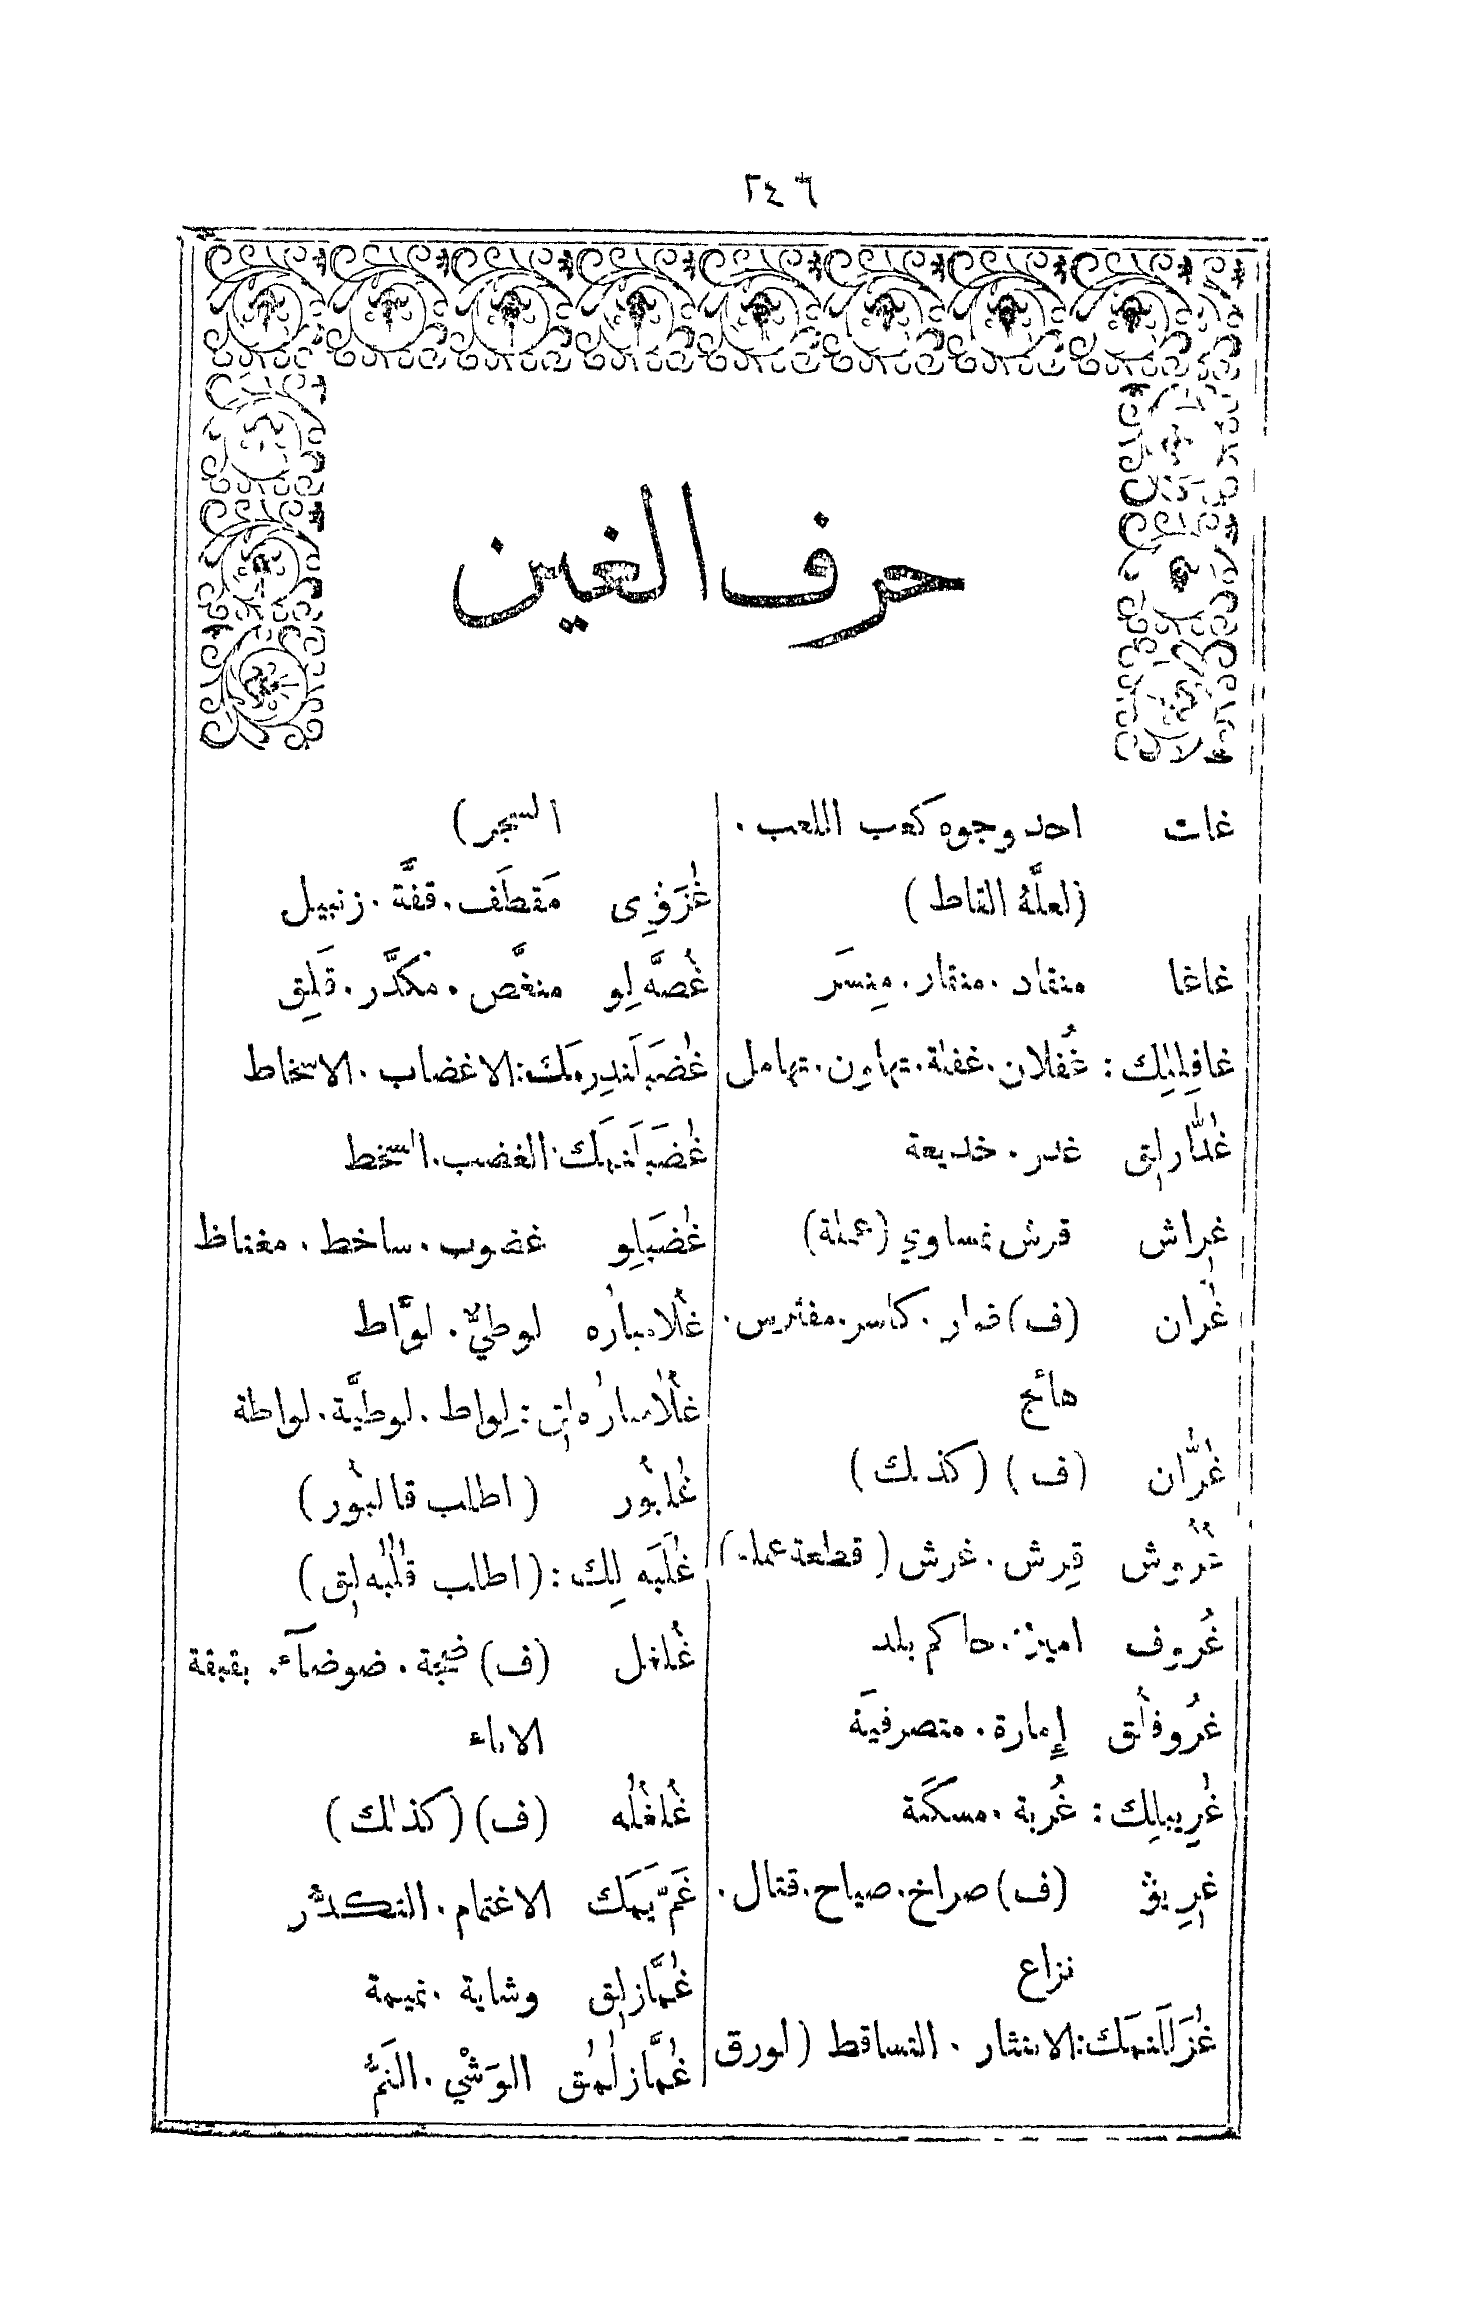 ٢٤٦
حرف الغين
غات احد وجوه كعب اللعب .
(لعلَّهُ القاط)
غاغا منقاد . منقار . مِنسَر
غافِلِلِك : غُفلان . غفلة . تهاون . تهامل
غدَّارلِق غدر . خديعة
غراش قرش نمساوي (عملة)
غُران (ف) غدار . كاسر . مفترس .
هائج
غُرَّان (ف) (كذلك)
غُرُوش قِرش . غرش (قطعة عملة)
غُروف امير . حاكم بلد
غُروفلُق إمارة . متصرفية
غَرِيبلِك : غُربة . مسكَنة
غِرِيو (ف) صراخ . صياح . قتال .
نزاع
غَزَللَنمَك : الانتثار . التساقط (لورق
الشجر)
مَقطَف . قفَّة . زنبيل
غُصَّه لِو منغَّص . مكدَّر . قَلِق
غَضَبلَندِرمَك : الاغضاب . الاسخاط
غَضَبلَنمَك : الغضب . السخط
غَضَبلِو غضوب . ساخط . مغتاظ
غُلامپاره لوطيّ . لوَّاط
غُلامپاره لِق : لِواط . لوطيَّة . لواطة
غُلبُور (اطلب قالبُور)
غَلَبَه لِك : (اطلب قلَبه لِق)
غُلغل (ف) ضجَّة . ضوضآء . بقبقة
الاناء
غُلغُله (ف) (كذلك)
غَمّ يَمَك الاغتمام . التكدُّر
غَمَّازلِق وشاية . نميمة
غَمَّازلَمَق الوَشْي . النَمّ